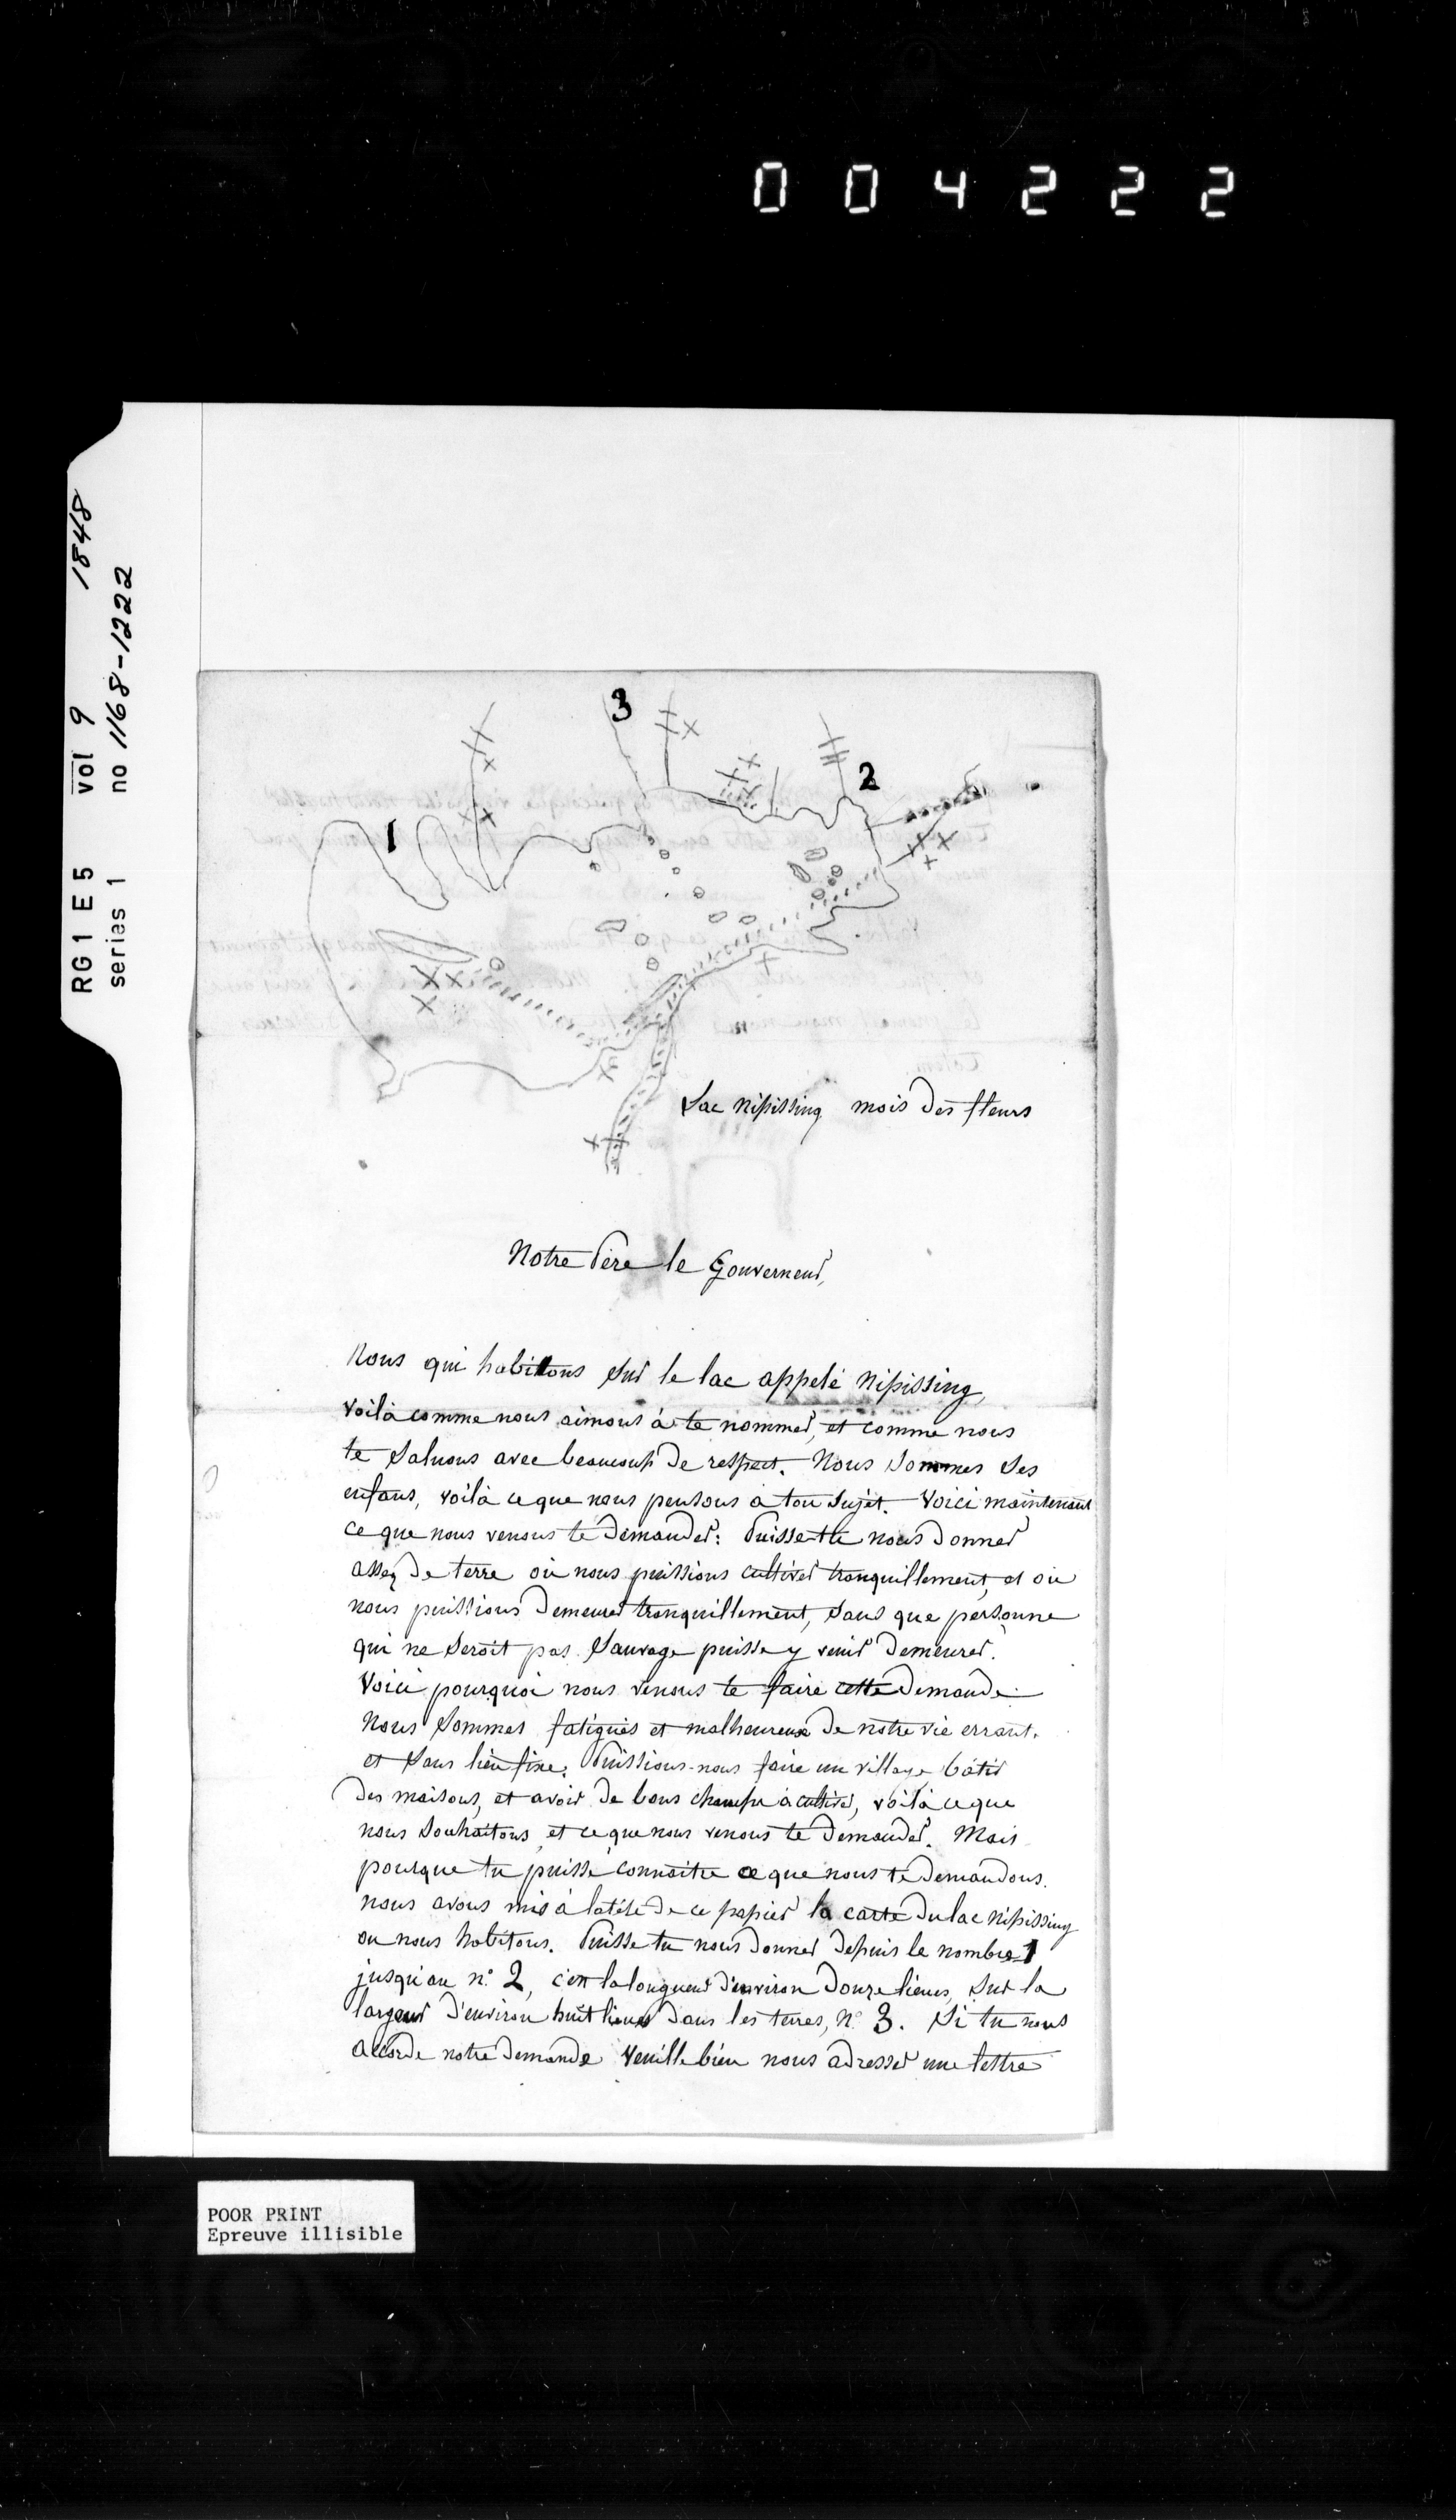 004222
RG1 E5 vol 9 1848
series 1 no 1168-1222
3
2
1
Lac Nipissing mois des fleurs
Notre Père le Gouverneur,
Nous qui habitons sur le lac appelé Nipissing,
voilà comme nous aimons à te nommer, et comme nous
te saluons avec beaucoup de respect. Nous sommes ses
enfans, voilà ce que nous pensons à ton sujet. Voici maintenant
ce que nous venons te demander: Puisse-tu nous donner
assez de terre où nous puissions cultiver tranquillement, et où
nous puissions demeurer tranquillement, sans que personne
qui ne seroit pas Sauvage puisse y venir demeurer.
Voici pourquoi nous venons te faire cette demande.
Nous sommes fatigués et malheureux de notre vie errant.
et sans lieu fixe. Puissions-nous faire un village, bâtir
des maisons, et avoir de bons champs à cultiver, voilà ce que
nous souhaitons, et ce que nous venons te demander. Mais
pourque tu puisse connaitre ce que nous te demandons.
nous avons mis à la tête de ce papier la carte du lac Nipissing
ou nous habitons. Puisse tu nous donner depuis le nombre 1
jusqu'au n° 2, c'est la longueur d'environ douze lieues, sur la
largeur d'environ huit lieues dans les terres, n° 3. Si tu nous
accorde notre demande veuille bien nous adresser une lettre
POOR PRINT
Epreuve illisible